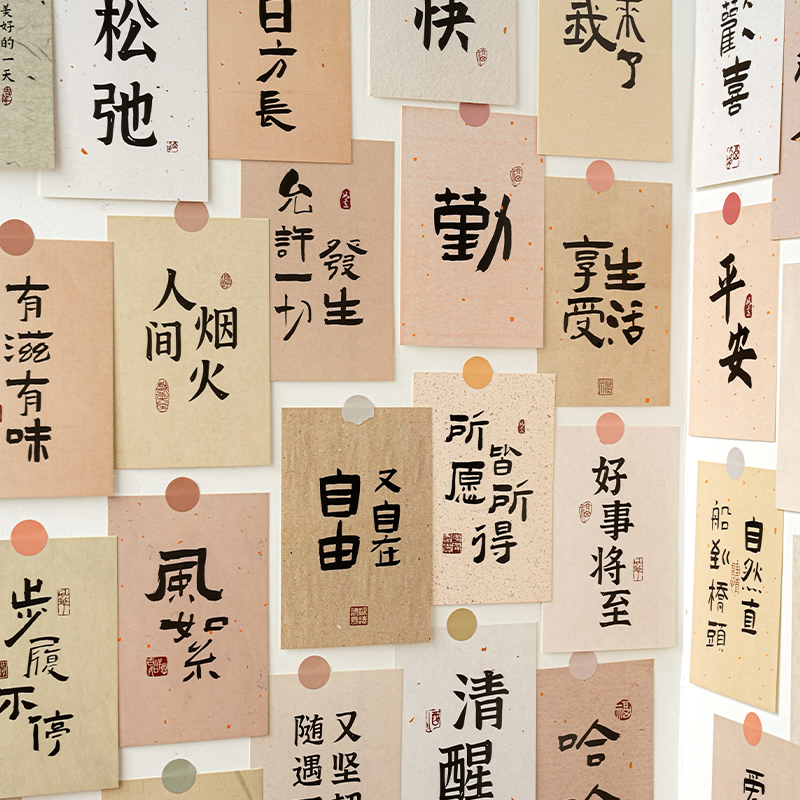 美好的一天
松弛
日方長
快
我
来了
歡喜
允許一切
發生
勤
享受
生活
平安
有滋有味
人间
烟火
自由
又自在
所愿
皆所得
好事将至
船到橋頭
自然直
風絮
步履不停
随遇
又坚
清醒
哈